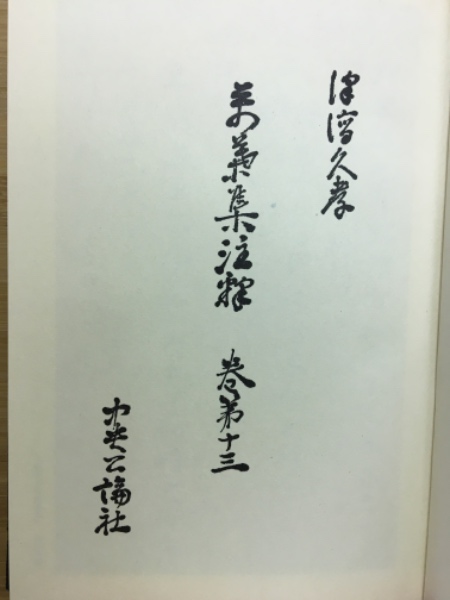 澤瀉久孝
萬葉集注釋 巻第十三
中央公論社